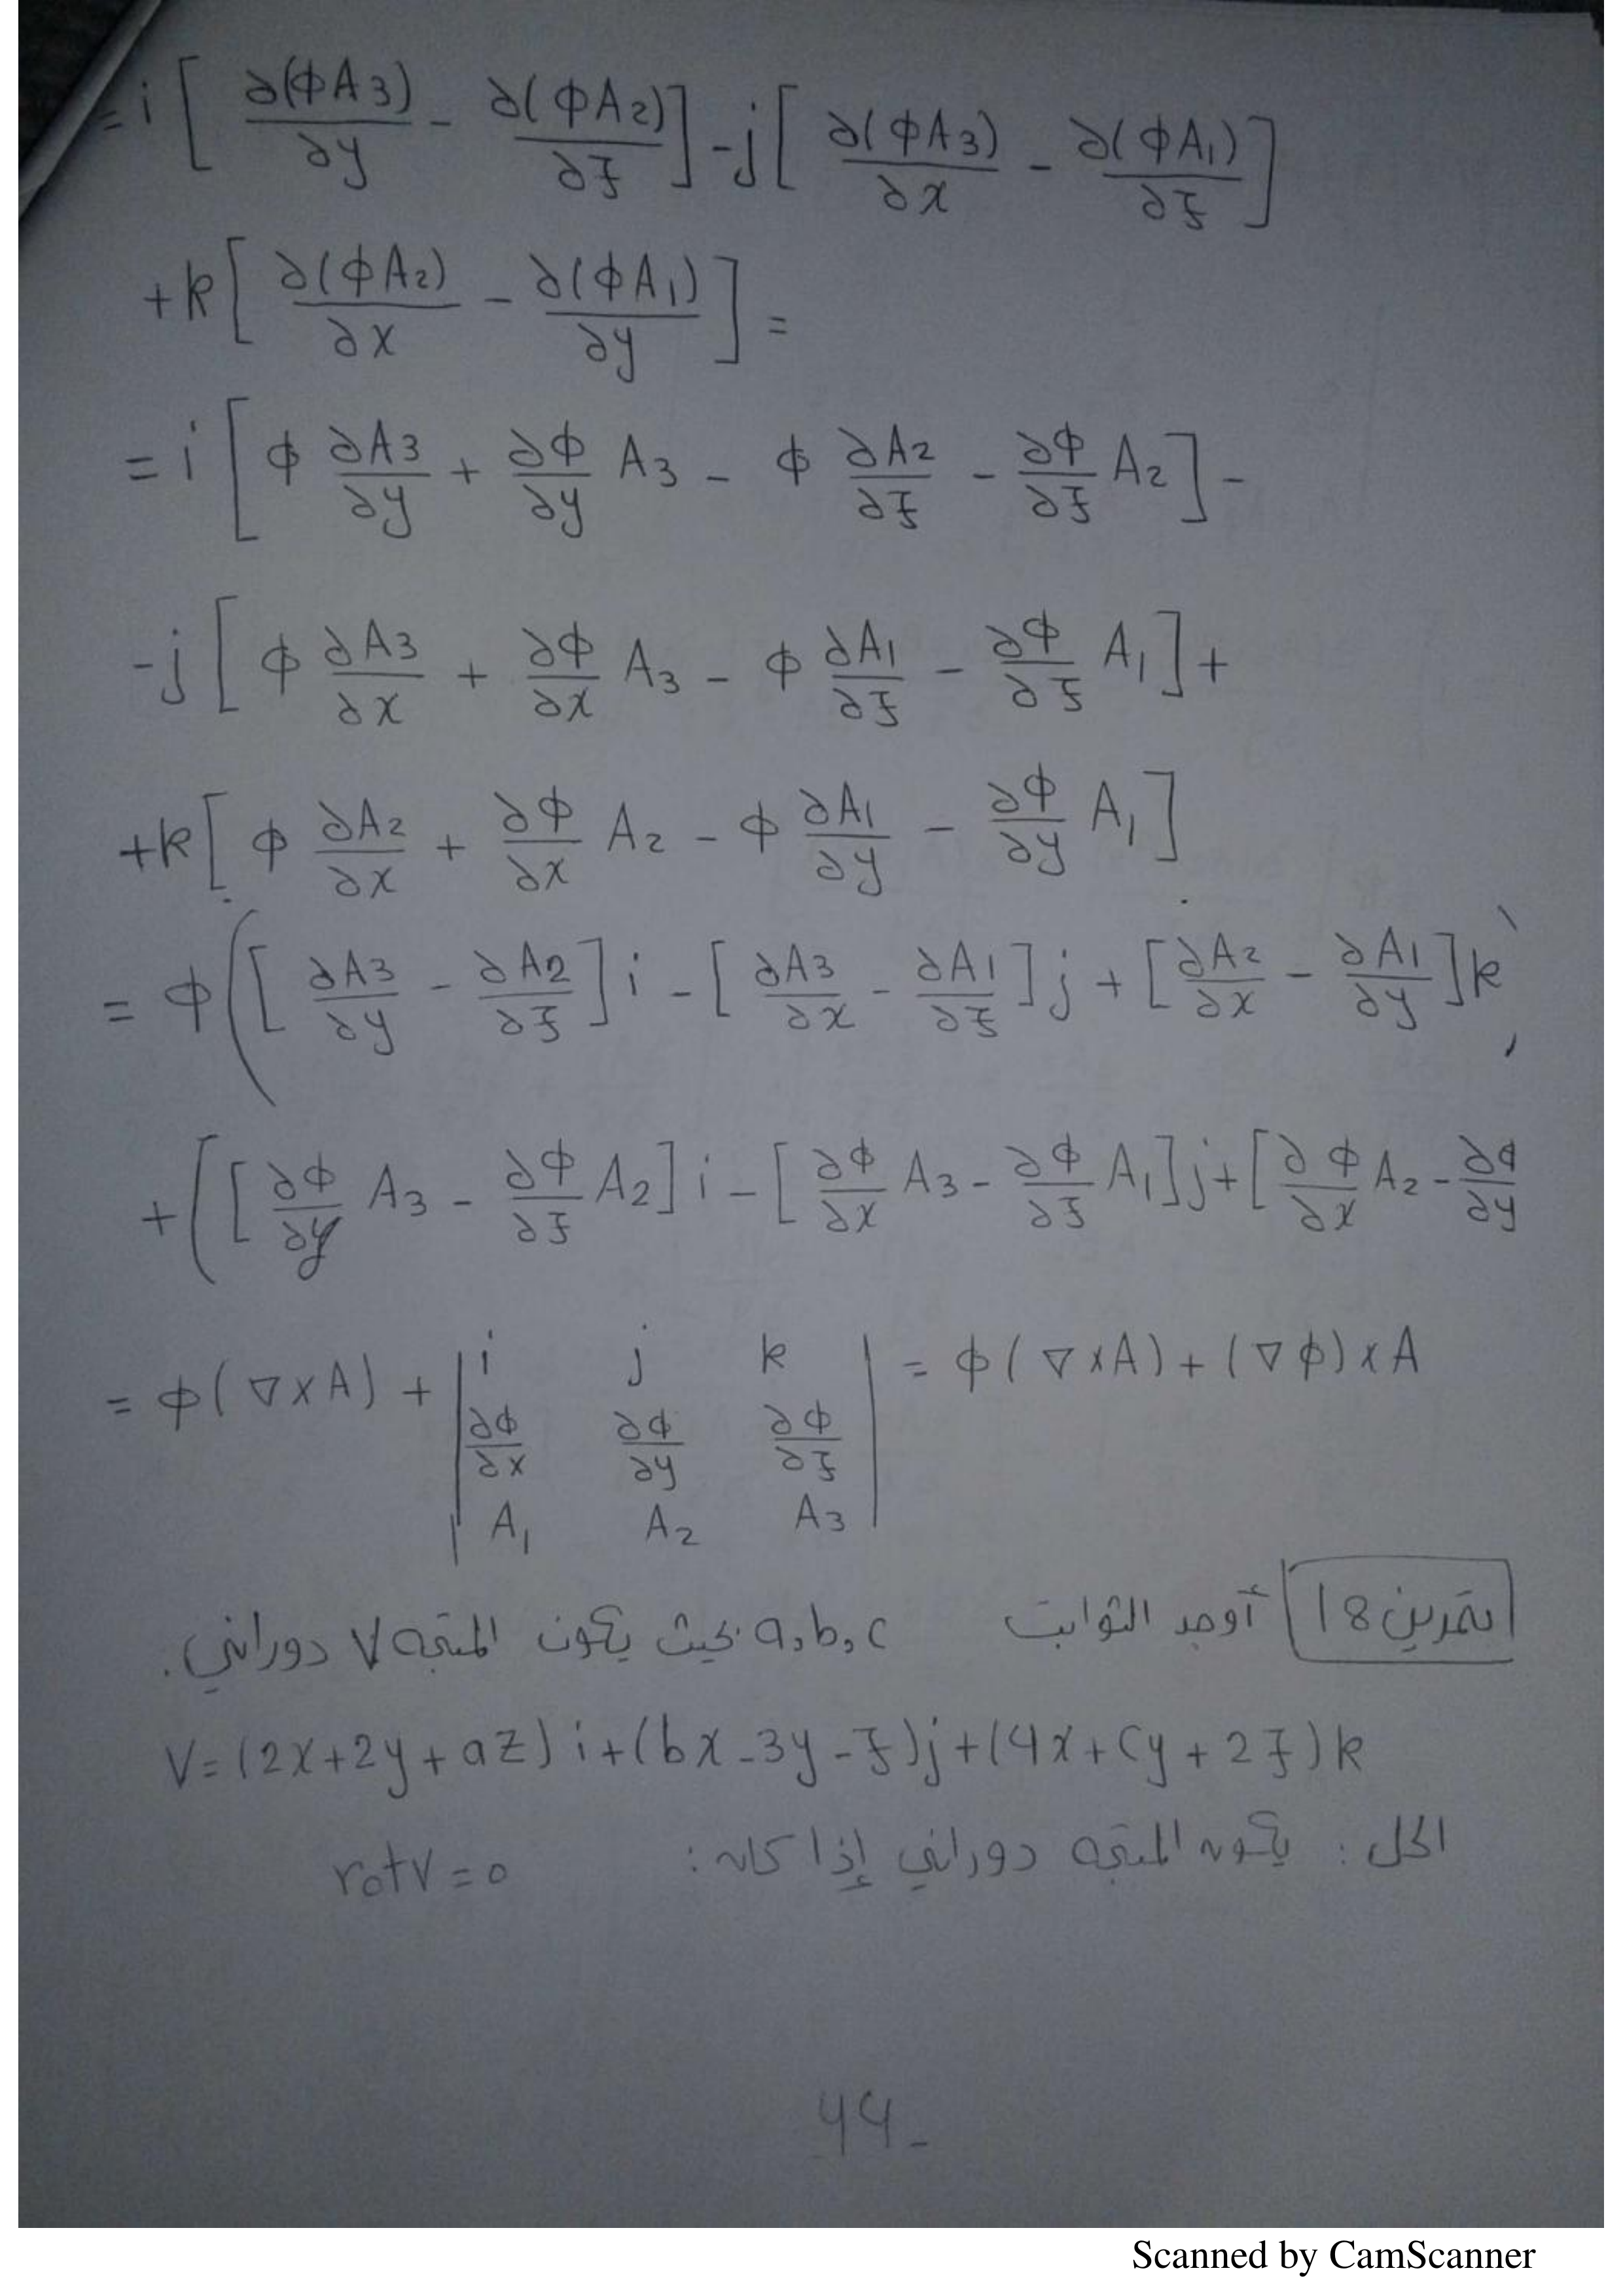 = i [ ∂(ϕA3)/∂y - ∂(ϕA2)/∂z ] - j [ ∂(ϕA3)/∂x - ∂(ϕA1)/∂z ]
+ k [ ∂(ϕA2)/∂x - ∂(ϕA1)/∂y ] =
= i [ ϕ ∂A3/∂y + ∂ϕ/∂y A3 - ϕ ∂A2/∂z - ∂ϕ/∂z A2 ] -
- j [ ϕ ∂A3/∂x + ∂ϕ/∂x A3 - ϕ ∂A1/∂z - ∂ϕ/∂z A1 ] +
+ k [ ϕ ∂A2/∂x + ∂ϕ/∂x A2 - ϕ ∂A1/∂y - ∂ϕ/∂y A1 ]
= ϕ ( [ ∂A3/∂y - ∂A2/∂z ] i - [ ∂A3/∂x - ∂A1/∂z ] j + [ ∂A2/∂x - ∂A1/∂y ] k )
+ ( [ ∂ϕ/∂y A3 - ∂ϕ/∂z A2 ] i - [ ∂ϕ/∂x A3 - ∂ϕ/∂z A1 ] j + [ ∂ϕ/∂x A2 - ∂ϕ/∂y
= ϕ ( ∇ x A ) + | i j k | = ϕ ( ∇ x A ) + ( ∇ ϕ ) x A
∂ϕ/∂x ∂ϕ/∂y ∂ϕ/∂z
A1 A2 A3
تمرين 18 أوجد الثوابت a, b, c بحيث يكون المتجه V دوراني.
V = (2x + 2y + az) i + (bx - 3y - z) j + (4x + cy + 2z) k
الحل: يكون المتجه دوراني إذا كان: rotv = 0
44-
Scanned by CamScanner